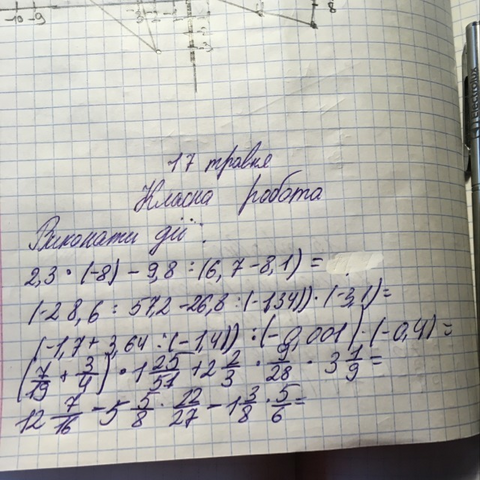 -10 -9
8
17 травня
Класна робота
Виконати дії:
2,3 · (-8) - 9,8 : (6,7 - 8,1) =
(-28,6 : 57,2 - 26,8 : (-1,34)) · (-3,1) =
(-1,7 + 3,64 : (-1,4)) : (-0,001) · (-0,4) =
(7/19 + 3/4) · 1 25/51 + 2 2/3 · 9/28 · 3 1/9 =
12 7/16 - 5 5/8 · 22/27 - 1 3/8 · 5/6 =